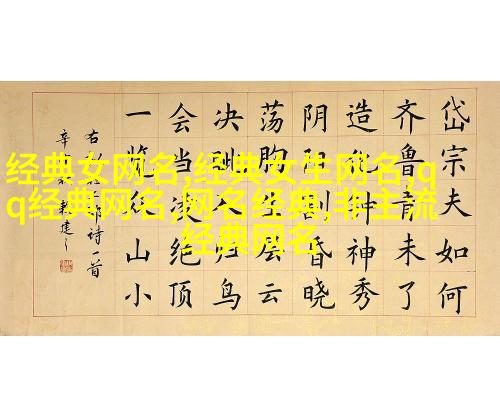 岱宗夫如何
齐鲁青未了
造化钟神秀
阴阳割昏晓
荡胸生层云
决眦入归鸟
会当凌绝顶
一览众山小
诗一首
经典女网名,经典女生网名,q
q经典网名,网名经典,非主流
经典网名